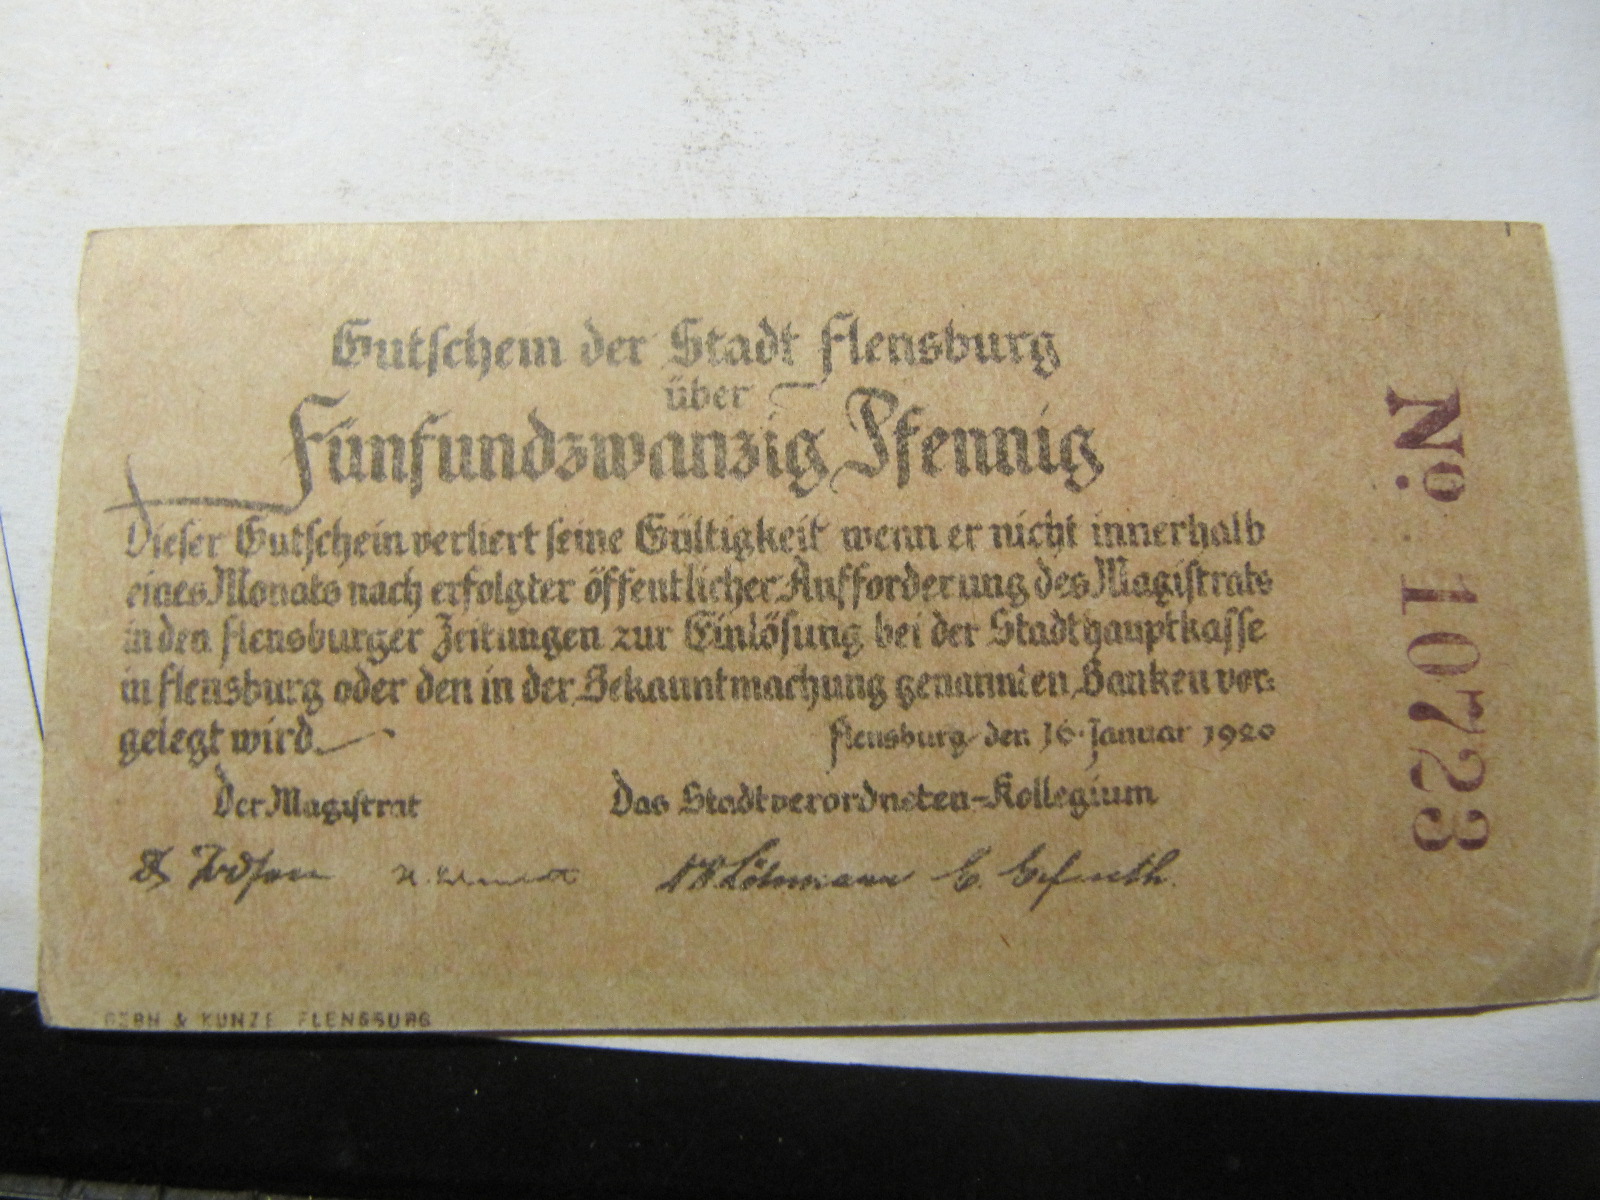 Gutschein der Stadt Flensburg
über
Fünfundzwanzig Pfennig
Dieser Gutschein verliert seine Gültigkeit wenn er nicht innerhalb
eines Monats nach erfolgter öffentlicher Aufforderung des Magistrats
in den Flensburger Zeitungen zur Einlösung bei der Stadthauptkasse
in Flensburg oder den in der Bekanntmachung genannten Banken vor=
gelegt wird.
Flensburg den 16. Januar 1920
Der Magistrat
Das Stadtverordneten-Kollegium
& KUNZE FLENSBURG
No. 10723